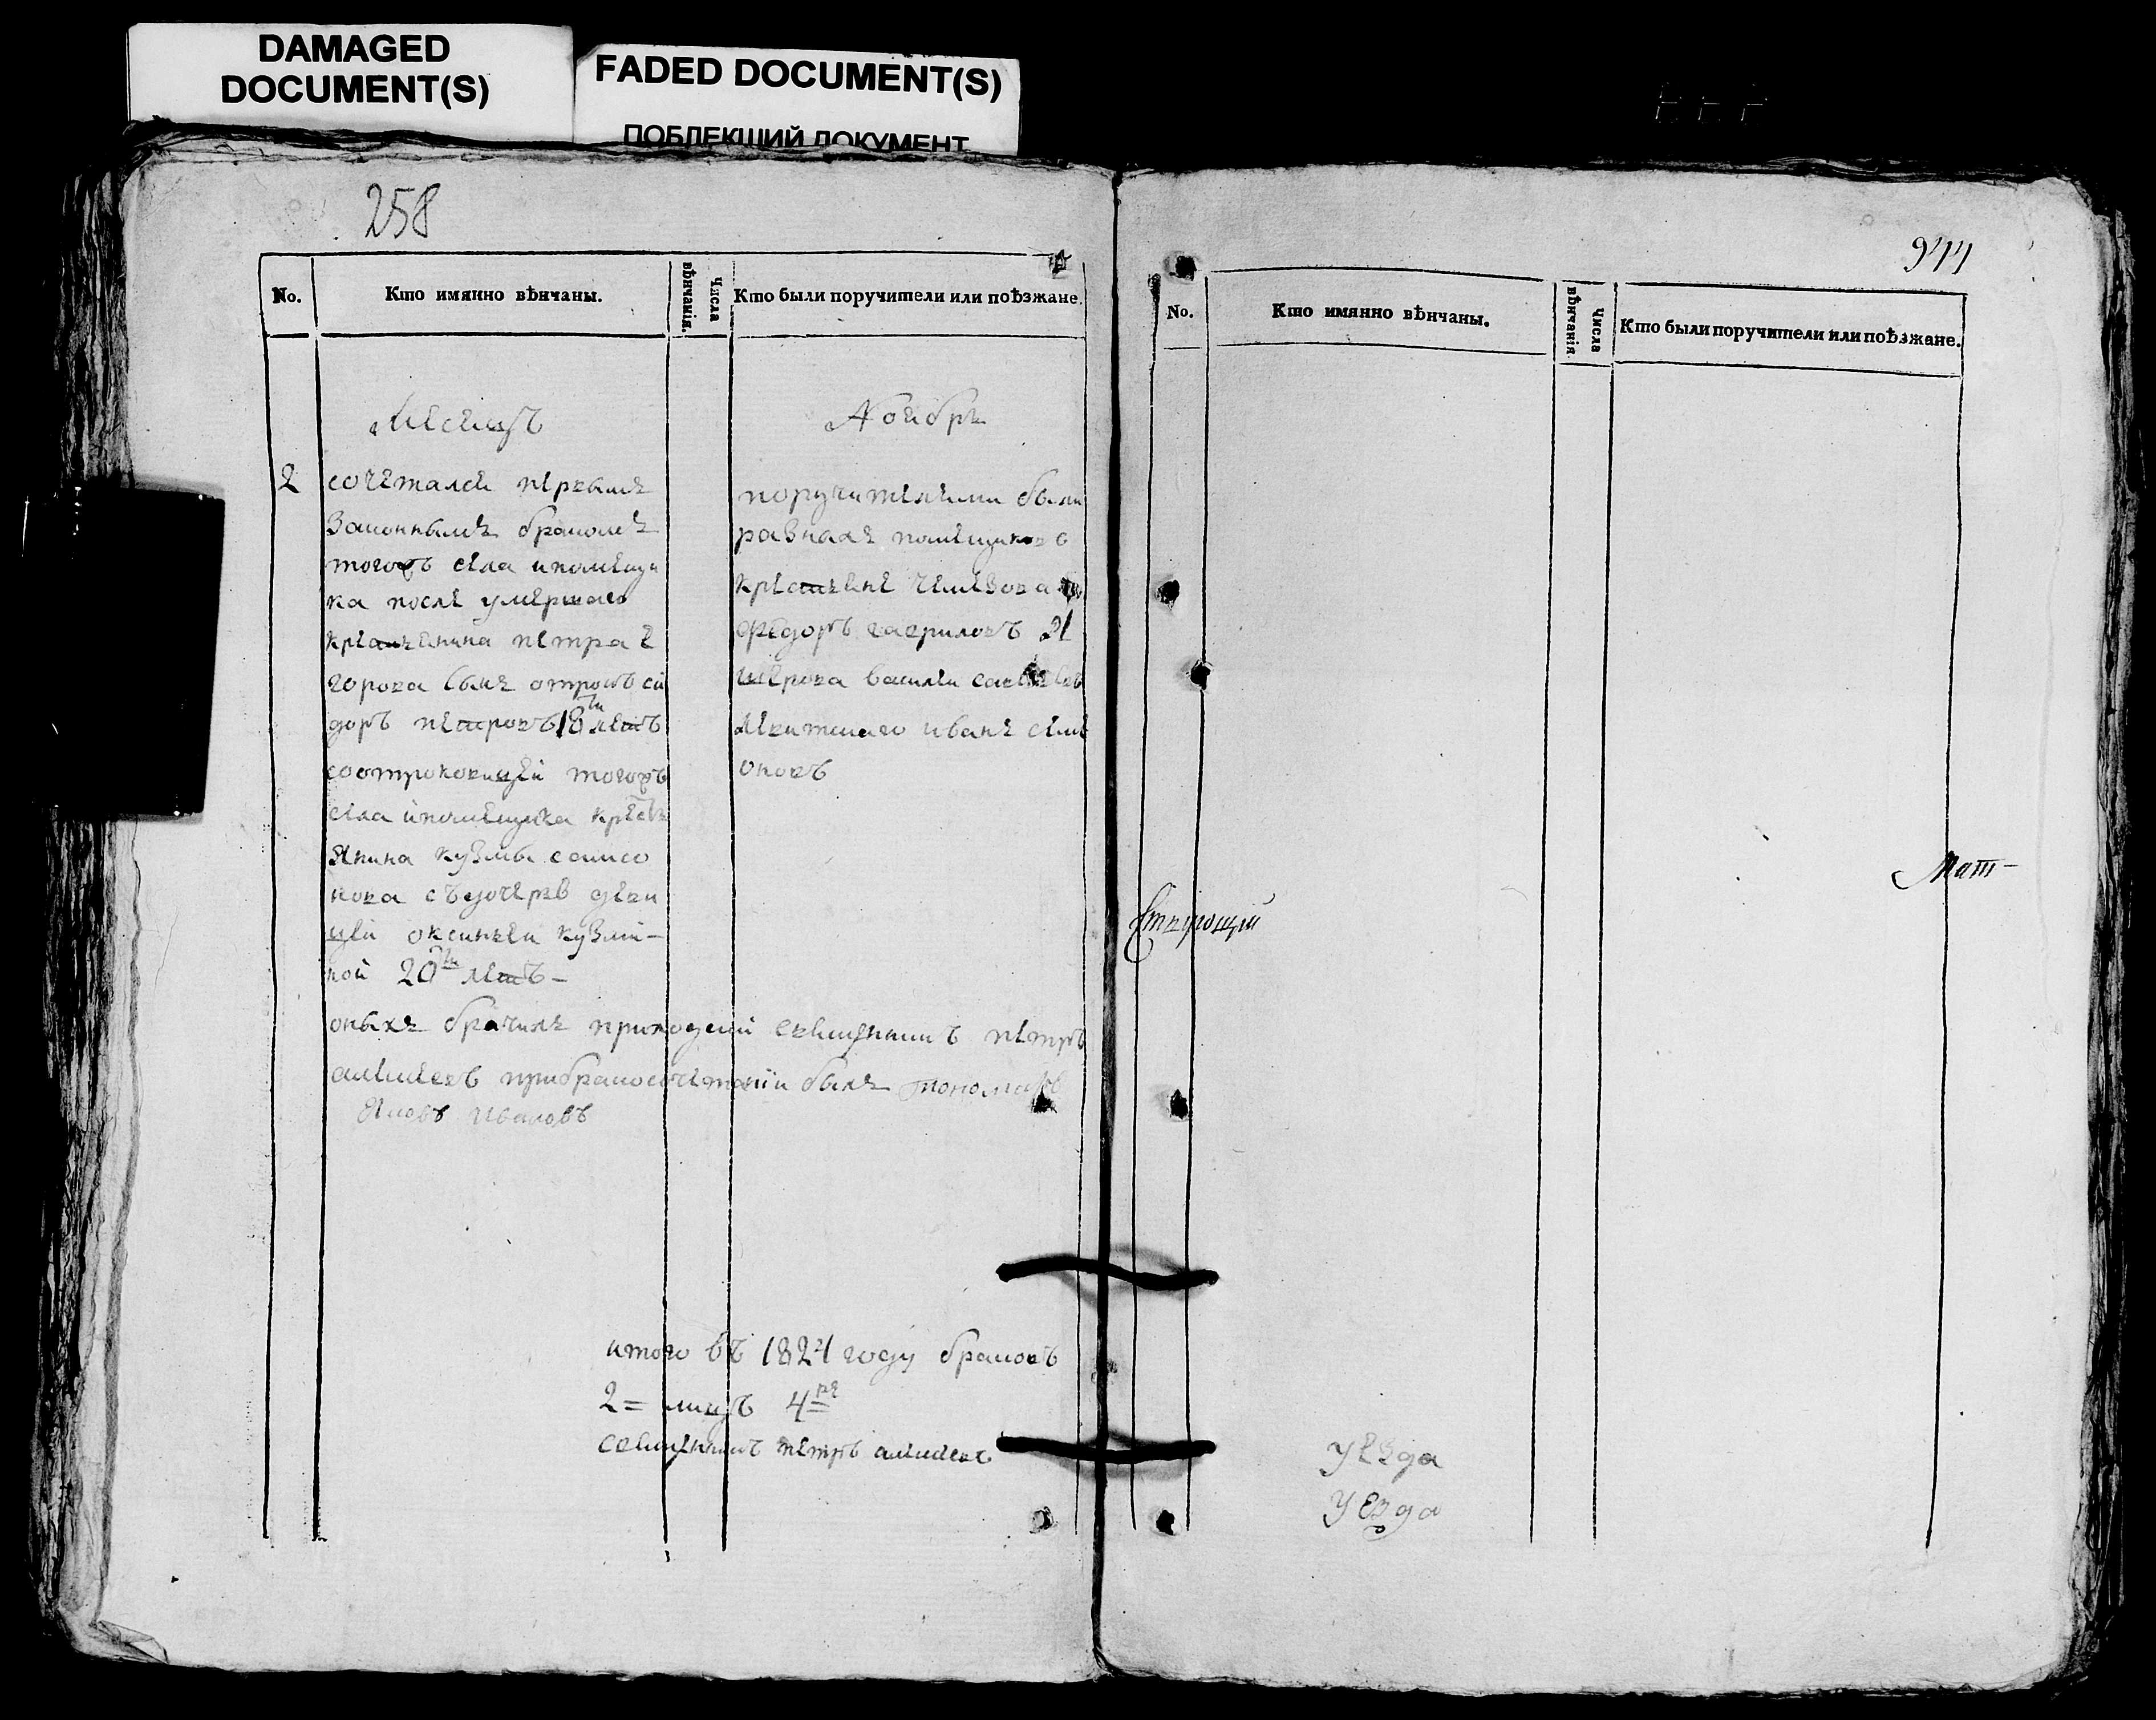 DAMAGED
DOCUMENT(S)
FADED DOCUMENT(S)
ПОБЛЕКШИЙ ДОКУМЕНТ
258
No.
Кто имянно вѣнчаны.
Числа вѣнчанія.
Кто были поручители или поѣзжане.
Месецъ
2
сочетался первымъ
Законнымъ бракомъ
тогожъ села ипомещи
ка после умершаго
крестьянина петра Е
горова сынъ отрокъ си
доръ петровъ 18ти летъ
соотроковицей тогожъ
села ипомещика кресть
янина кузмы самсо
нова съдочерью деви
цей оксиньей кузми-
ной 20ти летъ-
Ноября
поручителями были
разныхъ помещиковъ
крестьяне
федоръ гавриловъ
василеи
иванъ сими
оновъ
оныхъ брачилъ приходский священникъ петръ
алексеевъ прибракосочетании былъ пономарь
Яковъ Ивановъ
итого въ 1824 году браковъ
2= лицъ 4ре
священникъ петръ алексеевъ
944
No.
Кто имянно вѣнчаны.
Числа вѣнчанія.
Кто были поручители или поѣзжане.
Мат-
Уезда
Уезда